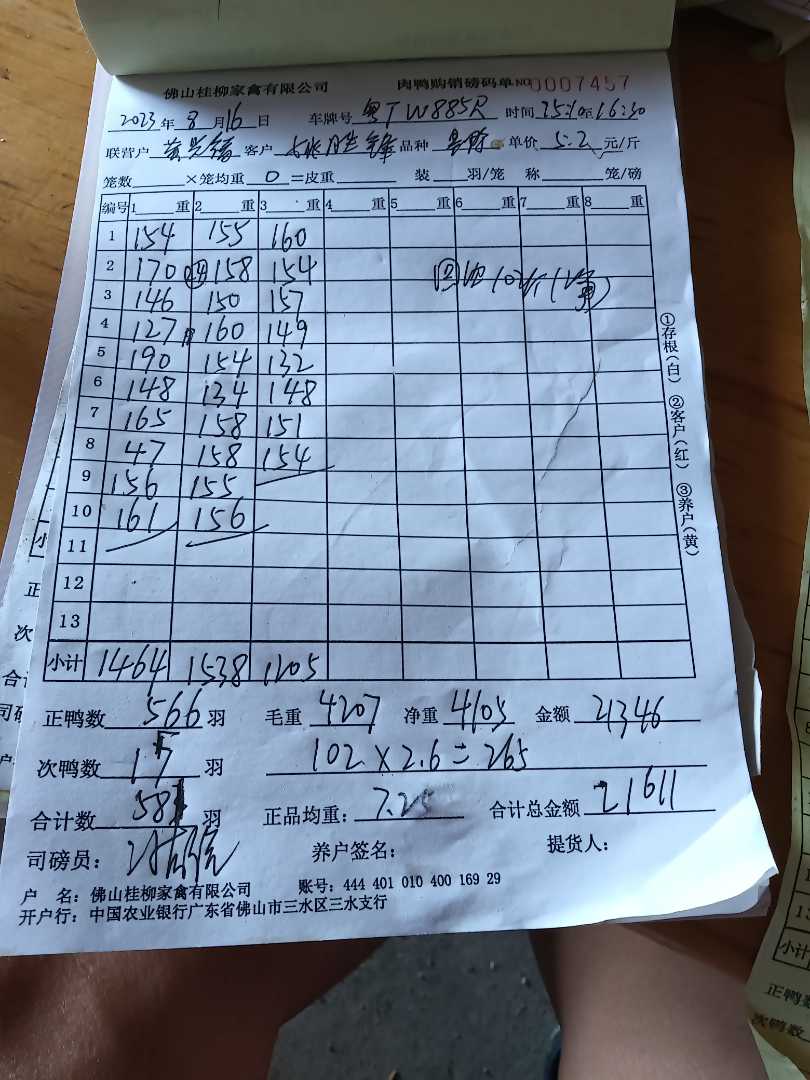 佛山桂柳家禽有限公司 肉鸭购销磅码单 NO 0007457
2023年8月16日 车牌号 粤TW885R 时间 15:10至16:30
联营户 客户 品种 单价 5.2 元/斤
笼数 ×笼均重 0 =皮重 装 羽/笼 称 笼/磅
编号 1 重 2 重 3 重 4 重 5 重 6 重 7 重 8 重
1 154 155 160
2 170 158 154
3 146 150 157
4 127 160 149
5 190 154 132
6 148 134 148
7 165 158 151
8 47 158 154
9 156 155
10 161 156
11
12
13
小计 1464 1538 1205
正鸭数 566 羽 毛重 4207 净重 4105 金额 21346
次鸭数 羽 102×2.6=265
合计数 羽 正品均重: 7.25 合计总金额 21611
司磅员: 养户签名: 提货人:
户 名: 佛山桂柳家禽有限公司 账号: 444 401 010 400 169 29
开户行: 中国农业银行广东省佛山市三水区三水支行
①存根(白) ②客户(红) ③养户(黄)
小计
正鸭数
次鸭数